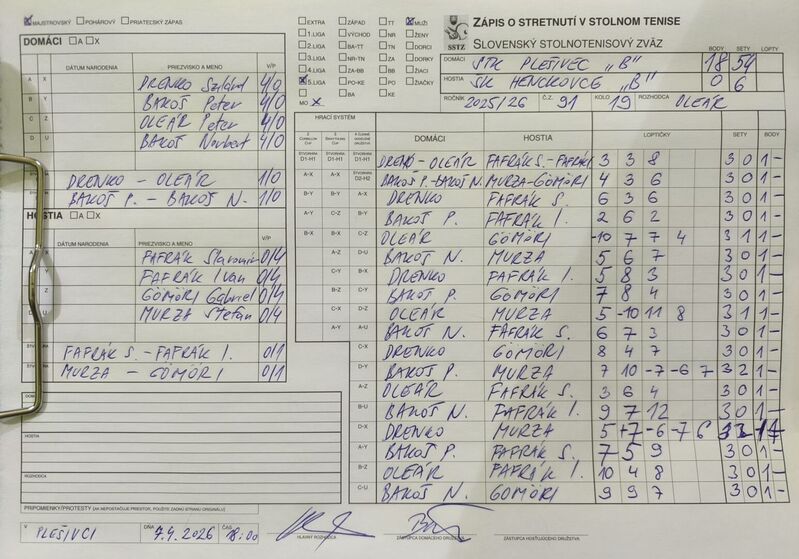 MAJSTROVSKÝ POHÁROVÝ PRIATEĽSKÝ ZÁPAS
DOMÁCI A X
DÁTUM NARODENIA PRIEZVISKO A MENO V/P
A X DRENKO Szilárd 4/0
B Y BAKOŠ Peter 4/0
C Z OLEÁR Peter 4/0
D U BAKOŠ Norbert 4/0
DRENKO - OLEÁR 1/0
BAKOŠ P. - BAKOŠ N. 1/0
HOSTIA A X
DÁTUM NARODENIA PRIEZVISKO A MENO V/P
FAFRÁK Slavomír 0/4
FAFRÁK Ivan 0/4
GÖMÖRI Gabriel 0/4
MURZA Štefan 0/4
FAFRÁK S. - FAFRÁK I. 0/1
MURZA - GÖMÖRI 0/1
DOMÁCI
HOSTIA
ROZHODCA
PRIPOMIENKY/PROTESTY (AK NEPOSTAČUJE PRIESTOR, POUŽITE ZADNÚ STRANU ORIGINÁLU)
V PLEŠIVCI DŇA 7.4.2026 ČAS 18:00
HLAVNÝ ROZHODCA ZÁSTUPCA DOMÁCEHO DRUŽSTVA ZÁSTUPCA HOSŤUJÚCEHO DRUŽSTVA
EXTRA ZÁPAD TT MUŽI
1. LIGA VÝCHOD NR ŽENY
2. LIGA BA-TT TN DORCI
3. LIGA NR-TN ZA DORKY
4. LIGA ZA-BB BB ŽIACI
5. LIGA PO-KE PO ŽIAČKY
BA KE
MO X
SSTZ
ZÁPIS O STRETNUTÍ V STOLNOM TENISE
SLOVENSKÝ STOLNOTENISOVÝ ZVÄZ
BODY SETY LOPTY
DOMÁCI STK PLEŠIVEC "B" 18 54
HOSTIA SK HENCKOVCE "B" 0 6
ROČNÍK 2025/26 Č.Z. 91 KOLO 19 ROZHODCA OLEÁR
HRACÍ SYSTÉM
DOMÁCI HOSTIA LOPTIČKY SETY BODY
ŠTVORHRA D1-H1 ŠTVORHRA D1-H1 ŠTVORHRA D1-H1 DRENKO - OLEÁR FAFRÁK S. - FAFRÁK I 3 3 8 3 0 1 -
A-X A-X ŠTVORHRA D2-H2 BAKOŠ P. - BAKOŠ N. MURZA - GÖMÖRI 4 3 6 3 0 1 -
B-Y B-Y A-X DRENKO FAFRÁK S. 6 3 6 3 0 1 -
A-Y C-Z B-Y BAKOŠ P. FAFRÁK I. 2 6 2 3 0 1 -
B-X B-X C-Z OLEÁR GÖMÖRI -10 7 7 4 3 1 1 -
A-Z D-U BAKOŠ N. MURZA 5 6 7 3 0 1 -
C-Y B-X DRENKO FAFRÁK I. 5 8 3 3 0 1 -
B-Z C-Y BAKOŠ P. GÖMÖRI 7 8 4 3 0 1 -
C-X D-Z OLEÁR MURZA 5 -10 11 8 3 1 1 -
A-Y A-U BAKOŠ N. FAFRÁK S. 6 7 3 3 0 1 -
C-X DRENKO GÖMÖRI 8 4 7 3 0 1 -
D-Y BAKOŠ P. MURZA 7 10 -7 -6 7 3 2 1 -
A-Z OLEÁR FAFRÁK S. 3 6 4 3 0 1 -
B-U BAKOŠ N. FAFRÁK I. 9 7 12 3 0 1 -
D-X DRENKO MURZA 5 +7 -6 -7 6
A-Y BAKOŠ P. FAFRÁK S. 7 5 9 3 0 1 -
B-Z OLEÁR FAFRÁK I. 10 4 8 3 0 1 -
C-U BAKOŠ N. GÖMÖRI 9 9 7 3 0 1 -